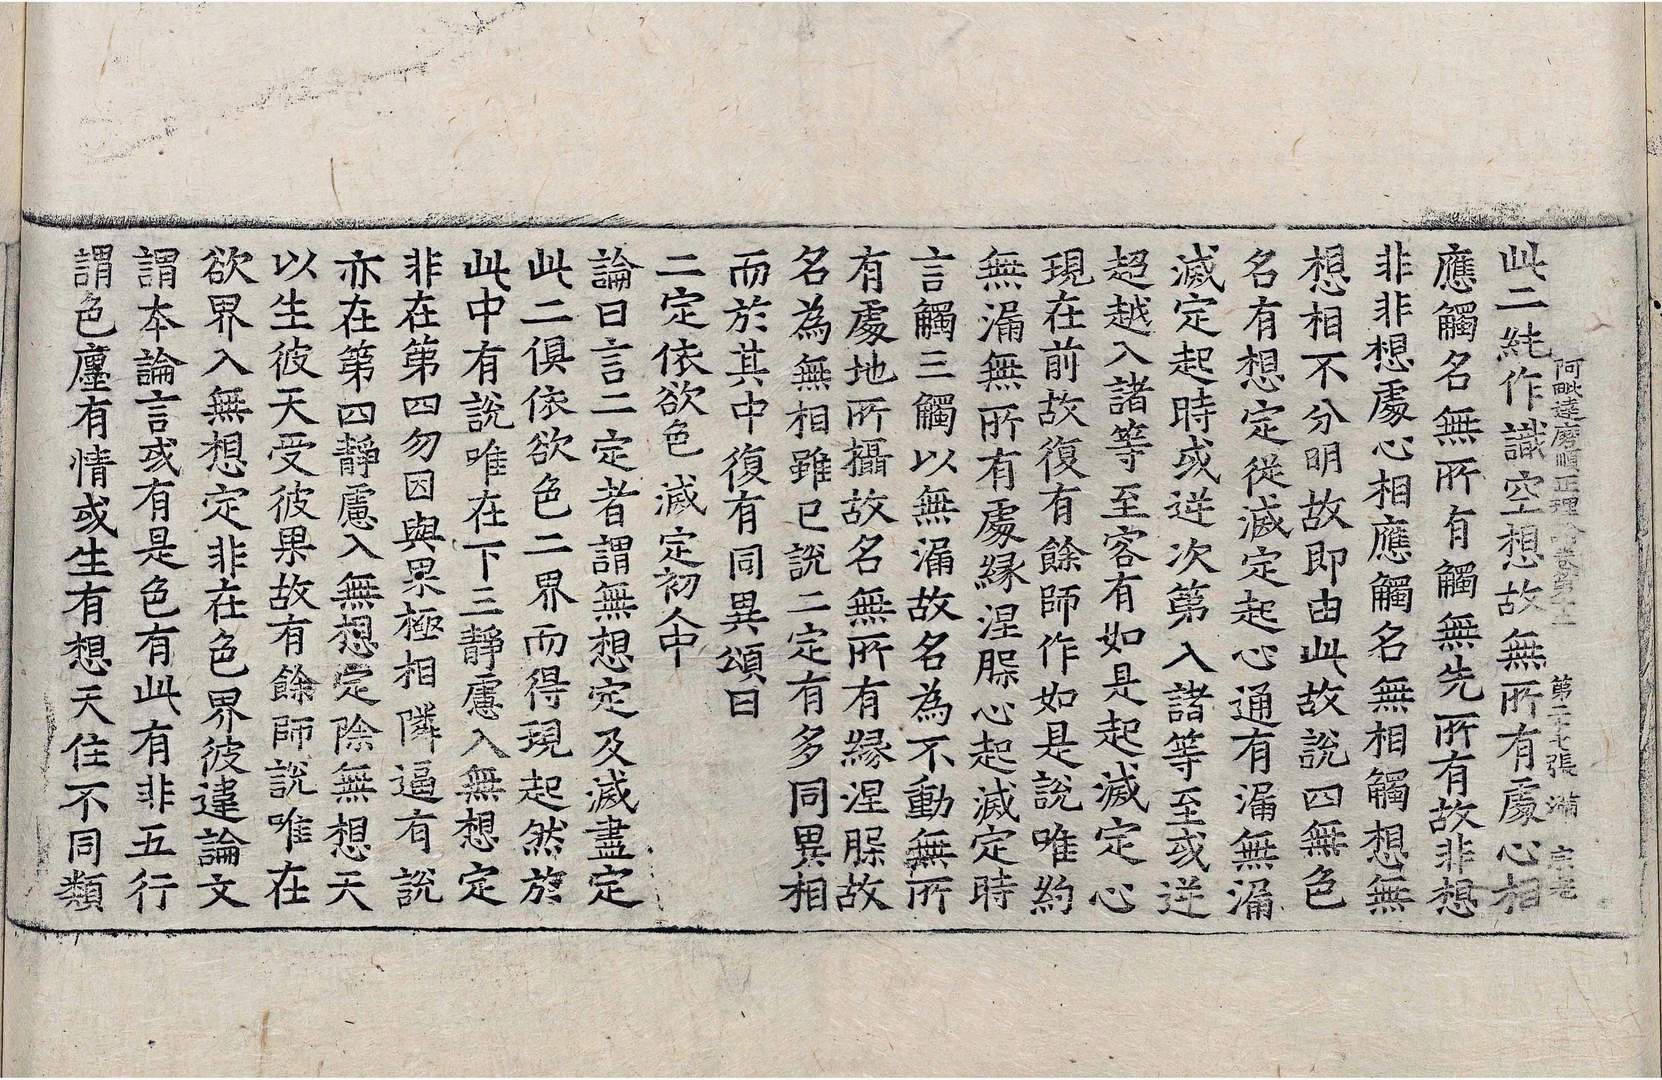 阿毗達磨順正理論卷第十二 第二十七張 滿
此二純作識空想故無所有處心相
應觸名無所有觸無先所有故非想
非非想處心相應觸名無相觸想無
想相不分明故即由此故說四無色
名有想定從滅定起心通有漏無漏
滅定起時或逆次第入諸等至或逆
超越入諸等至容有如是起滅定心
現在前故復有餘師作如是說唯約
無漏無所有處緣涅槃心起滅定時
言觸三觸以無漏故名為不動無所
有處地所攝故名無所有緣涅槃故
名為無相雖已說二定有多同異相
而於其中復有同異頌曰
二定依欲色 滅定初人中
論曰言二定者謂無想定及滅盡定
此二俱依欲色二界而得現起然於
此中有說唯在下三靜慮入無想定
非在第四勿因與果極相隣逼有說
亦在第四靜慮入無想定除無想天
以生彼天受彼果故有餘師說唯在
欲界入無想定非在色界彼違論文
謂本論言或有是色有此有非五行
謂色廛有情或生有想天住不同類